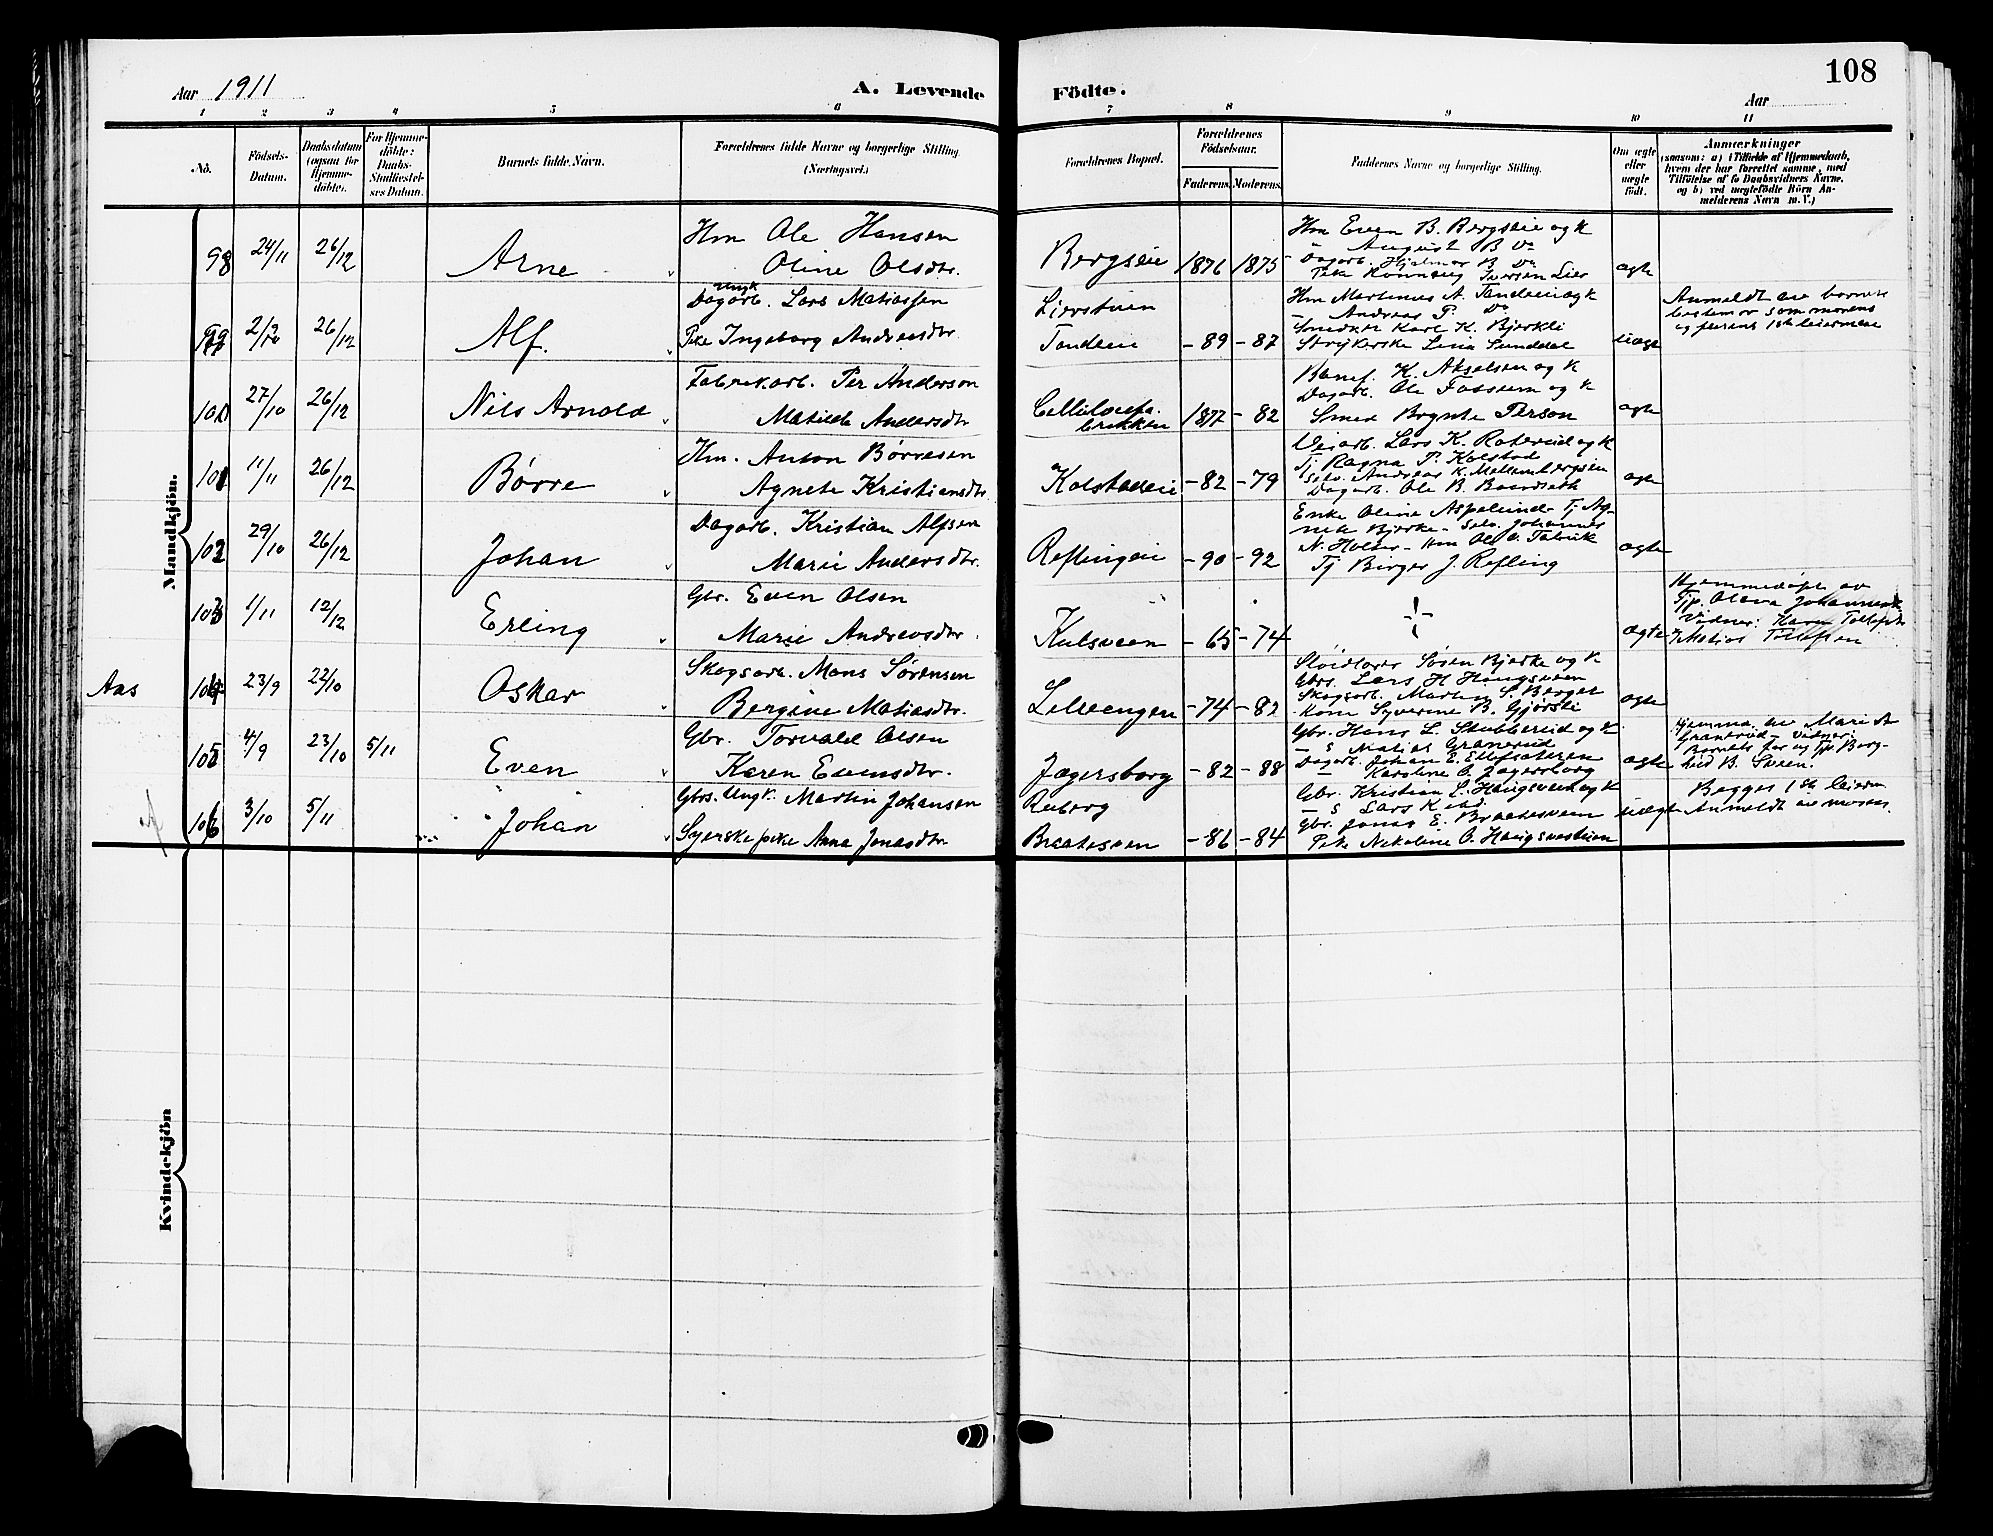 108
Aar 1911
A. Levende Födte.
Aar
1 2 3 4 5 6 7 8 9 10 11
No.
Födsels-
Datum.
Daabsdatum
(ogsaa for
Hjemme-
döbte).
For Hjemme-
döbte:
Daabs-
Stadfæstel-
ses Datum.
Barnets fulde Navn.
Forældrenes fulde Navne og borgerlige Stilling
(Næringsvei.)
Forældrenes Bopæl.
Forældrenes
Födselsaar.
Faderens. Moderens.
Faddernes Navne og borgerlige Stilling.
Om ægte
eller
uægte
født.
Anmærkninger
(saasom: a) i Tilfælde af Hjemmedaab,
hvem der har forrettet samme, med
Tilföielse af to Daabsvidners Navne,
og b) ved uægtefödte Börn An-
melderens Navn m. V.)
Mandkjön.
98 24/11 26/12 Arne
Hm Ole Hansen
Oline Olsdtr.
Bergseie 1876 1875
Hm Even B. Bergseie og k
" August B Do
Dagarb. Hjelmar B Do
Pike Iversen Lier
ægte
99 26/12 Alf.
Ungk
Dagarb. Lars Matiassen
Pike Ingeborg Andreasdtr.
Lierstuen
Tandeeie - 89 - 87
Hm Martinus A. Tandeeie og k
- Andreas P. Do
Karl K. Bjerkli
Strykerske Lina Sunddal
uægte
Anmeldt av barnets
bestemor som morens
og farens 1ste leiermaal
100 27/10 26/12 Nils Arnold
Fabrikarb. Per Anderson
Matilde Andersdtr
Cellulosefa-
brikken 1877 - 82
Banef. K. Akselsen og k
Dagarb. Ole Fossum og k
Smed Brynte Person
ægte
101 11/11 26/12 Børre
Hm. Anton Børresen
Agnete Kristiansdtr.
Kolstadeie - 82 - 79
Veiarb. Lars K. Roterud og k
Tj Ragna P. Kolstad
Selv. Andreas K. Mellembergseie
Dagarb. Ole B. Baardseth
ægte
102 29/10 26/12 Johan
Dagarb. Kristian Alfsen
Marie Andersdtr.
Reflingeie - 90 - 92
Enke Oline Aspelund - Tj. Ag-
nete Bjerke - Selv. Johannes
N. Holter - Hm Ole O. Fabrik
Tj Birger J. Refling
ægte
103 1/11 12/12 Erling
Gbr. Even Olsen
Marie Andreasdtr.
Kulsveen - 65 - 74
ægte
Hjemmedøpt av
Tjp. Olava Johannesdtr.
Vidner: Karen Tollefsdtr
Matias Tollefsen
Aas
104 23/9 22/10 Oskar
Skogsarb. Mons Sørensen
Bergine Matiasdtr.
Lilleengen - 74 - 82
Sløidlærer Søren Bjerke og k
Gbrs. Lars H Haugsveen
Skogsarb. Martin S. Berget
Kone Syverine B. Gjørsli
ægte
105 4/9 23/10 5/11 Even
Gbr. Torvald Olsen
Karen Evensdtr.
Jægersborg - 82 - 88
Gbr. Hans L. Stubberud og k
- s Matias Granerud
Dagarb. Johan E. Ellefsæteren
- Karoline O. Jægersborg
ægte
Hjemma av Mari A
Granerud - Vidner:
Barnets far og Tjp. Borg-
hild B. Skeen.
106 3/10 5/11 Johan
Gbrs. Ungk. Martin Johansen
Syerske pike Anna Jonasdtr
Raaberg
Braatesveen - 86 - 84
Gbr. Kristian L. Haugsveen og k
- s Lars K ibid.
Gbr. Jonas E. Braatesveen
Pike Nikoline O. Haugsvestuen
uægte
Begges 1ste leierm.
Anmeldt av moren.
Kvindekjön